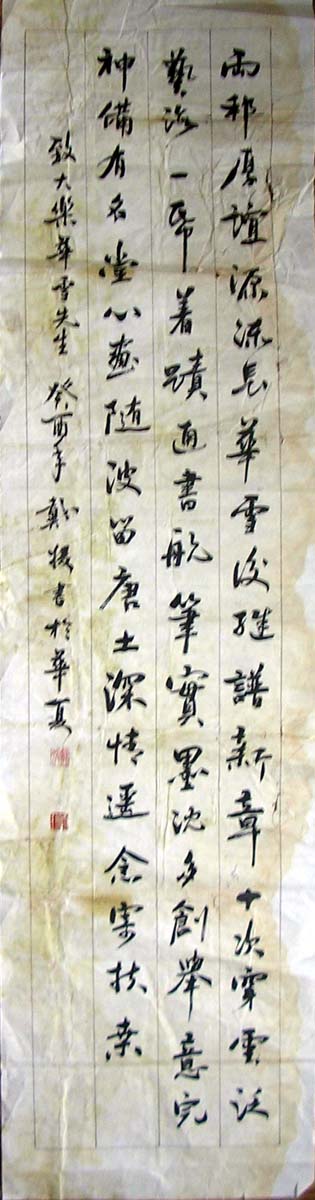 兩邦厚誼源流長華雪後繼譜新章十次穿雲泛
藝海一帋着蹟通書航筆實墨沈多創舉意完
神備有名堂心畫随波留唐土深情遥念寄扶桒
致大樂華雪先生 癸酉年 戴援書於華夏